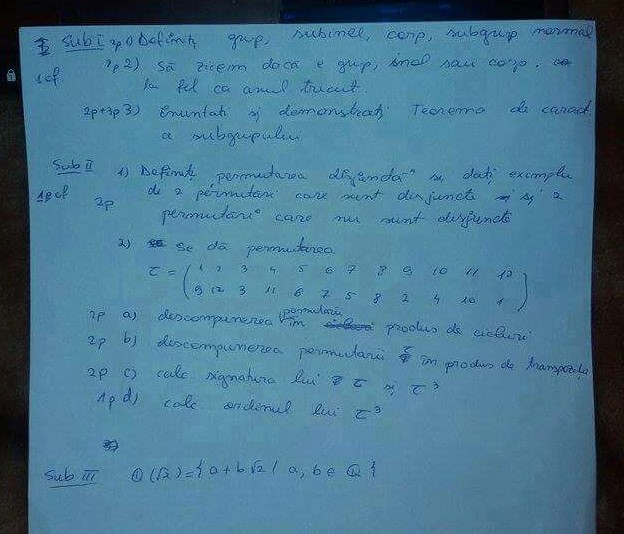 Sub I 2p 1) Definiți grup, subinel, corp, subgrup normal
1of 2p 2) Să zicem dacă e grup, inel sau corp.
la fel ca anul trecut.
2p+3p 3) Enunțați și demonstrați Teorema de caract.
a subgrupului
Sub II 1) Definiți permutarea disjunctă" și dați exemplu
1of 2p de 2 permutări care sunt disjuncte și 2
permutări care nu sunt disjuncte
2) Se dă permutarea
τ = ( 1 2 3 4 5 6 7 8 9 10 11 12
9 12 3 11 6 7 5 8 2 4 10 1 )
2p a) descompunerea permutării în produs de cicluri
2p b) descompunerea permutării τ în produs de transpoziții
2p c) calc signatura lui τ și τ³
1p d) calc ordinul lui τ³
Sub III Q(√2) = { a + b√2 / a, b ∈ Q }